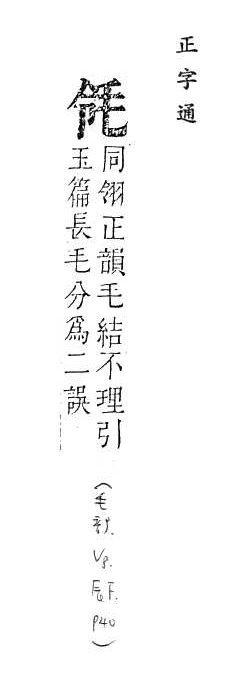 正字通
同翎正韻毛結不理引
玉篇長毛分爲二誤
(毛部. V5. 辰下. P40)